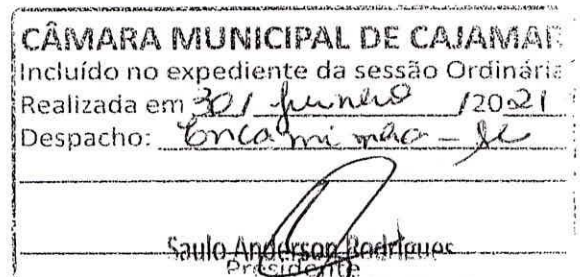 CÂMARA MUNICIPAL DE CAJAMAR
Incluído no expediente da sessão Ordinária
Realizada em 30 / junho /2021
Despacho: Encaminhe-se
Saulo Anderson Rodrigues
Presidente